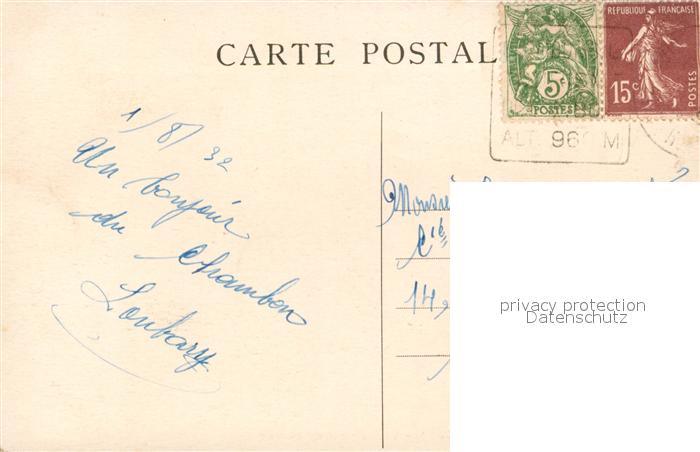 CARTE POSTAL
5c
POSTES
REPUBLIQUE FRANÇAISE
15c
POSTES
ALT. 960 M
1/8/32
Un bonjour
du Chambon
Loubary
Monsieur
Cie
14,
privacy protection
Datenschutz